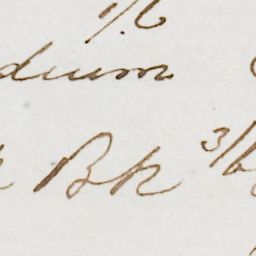 1/6
dium
Bk 3/6